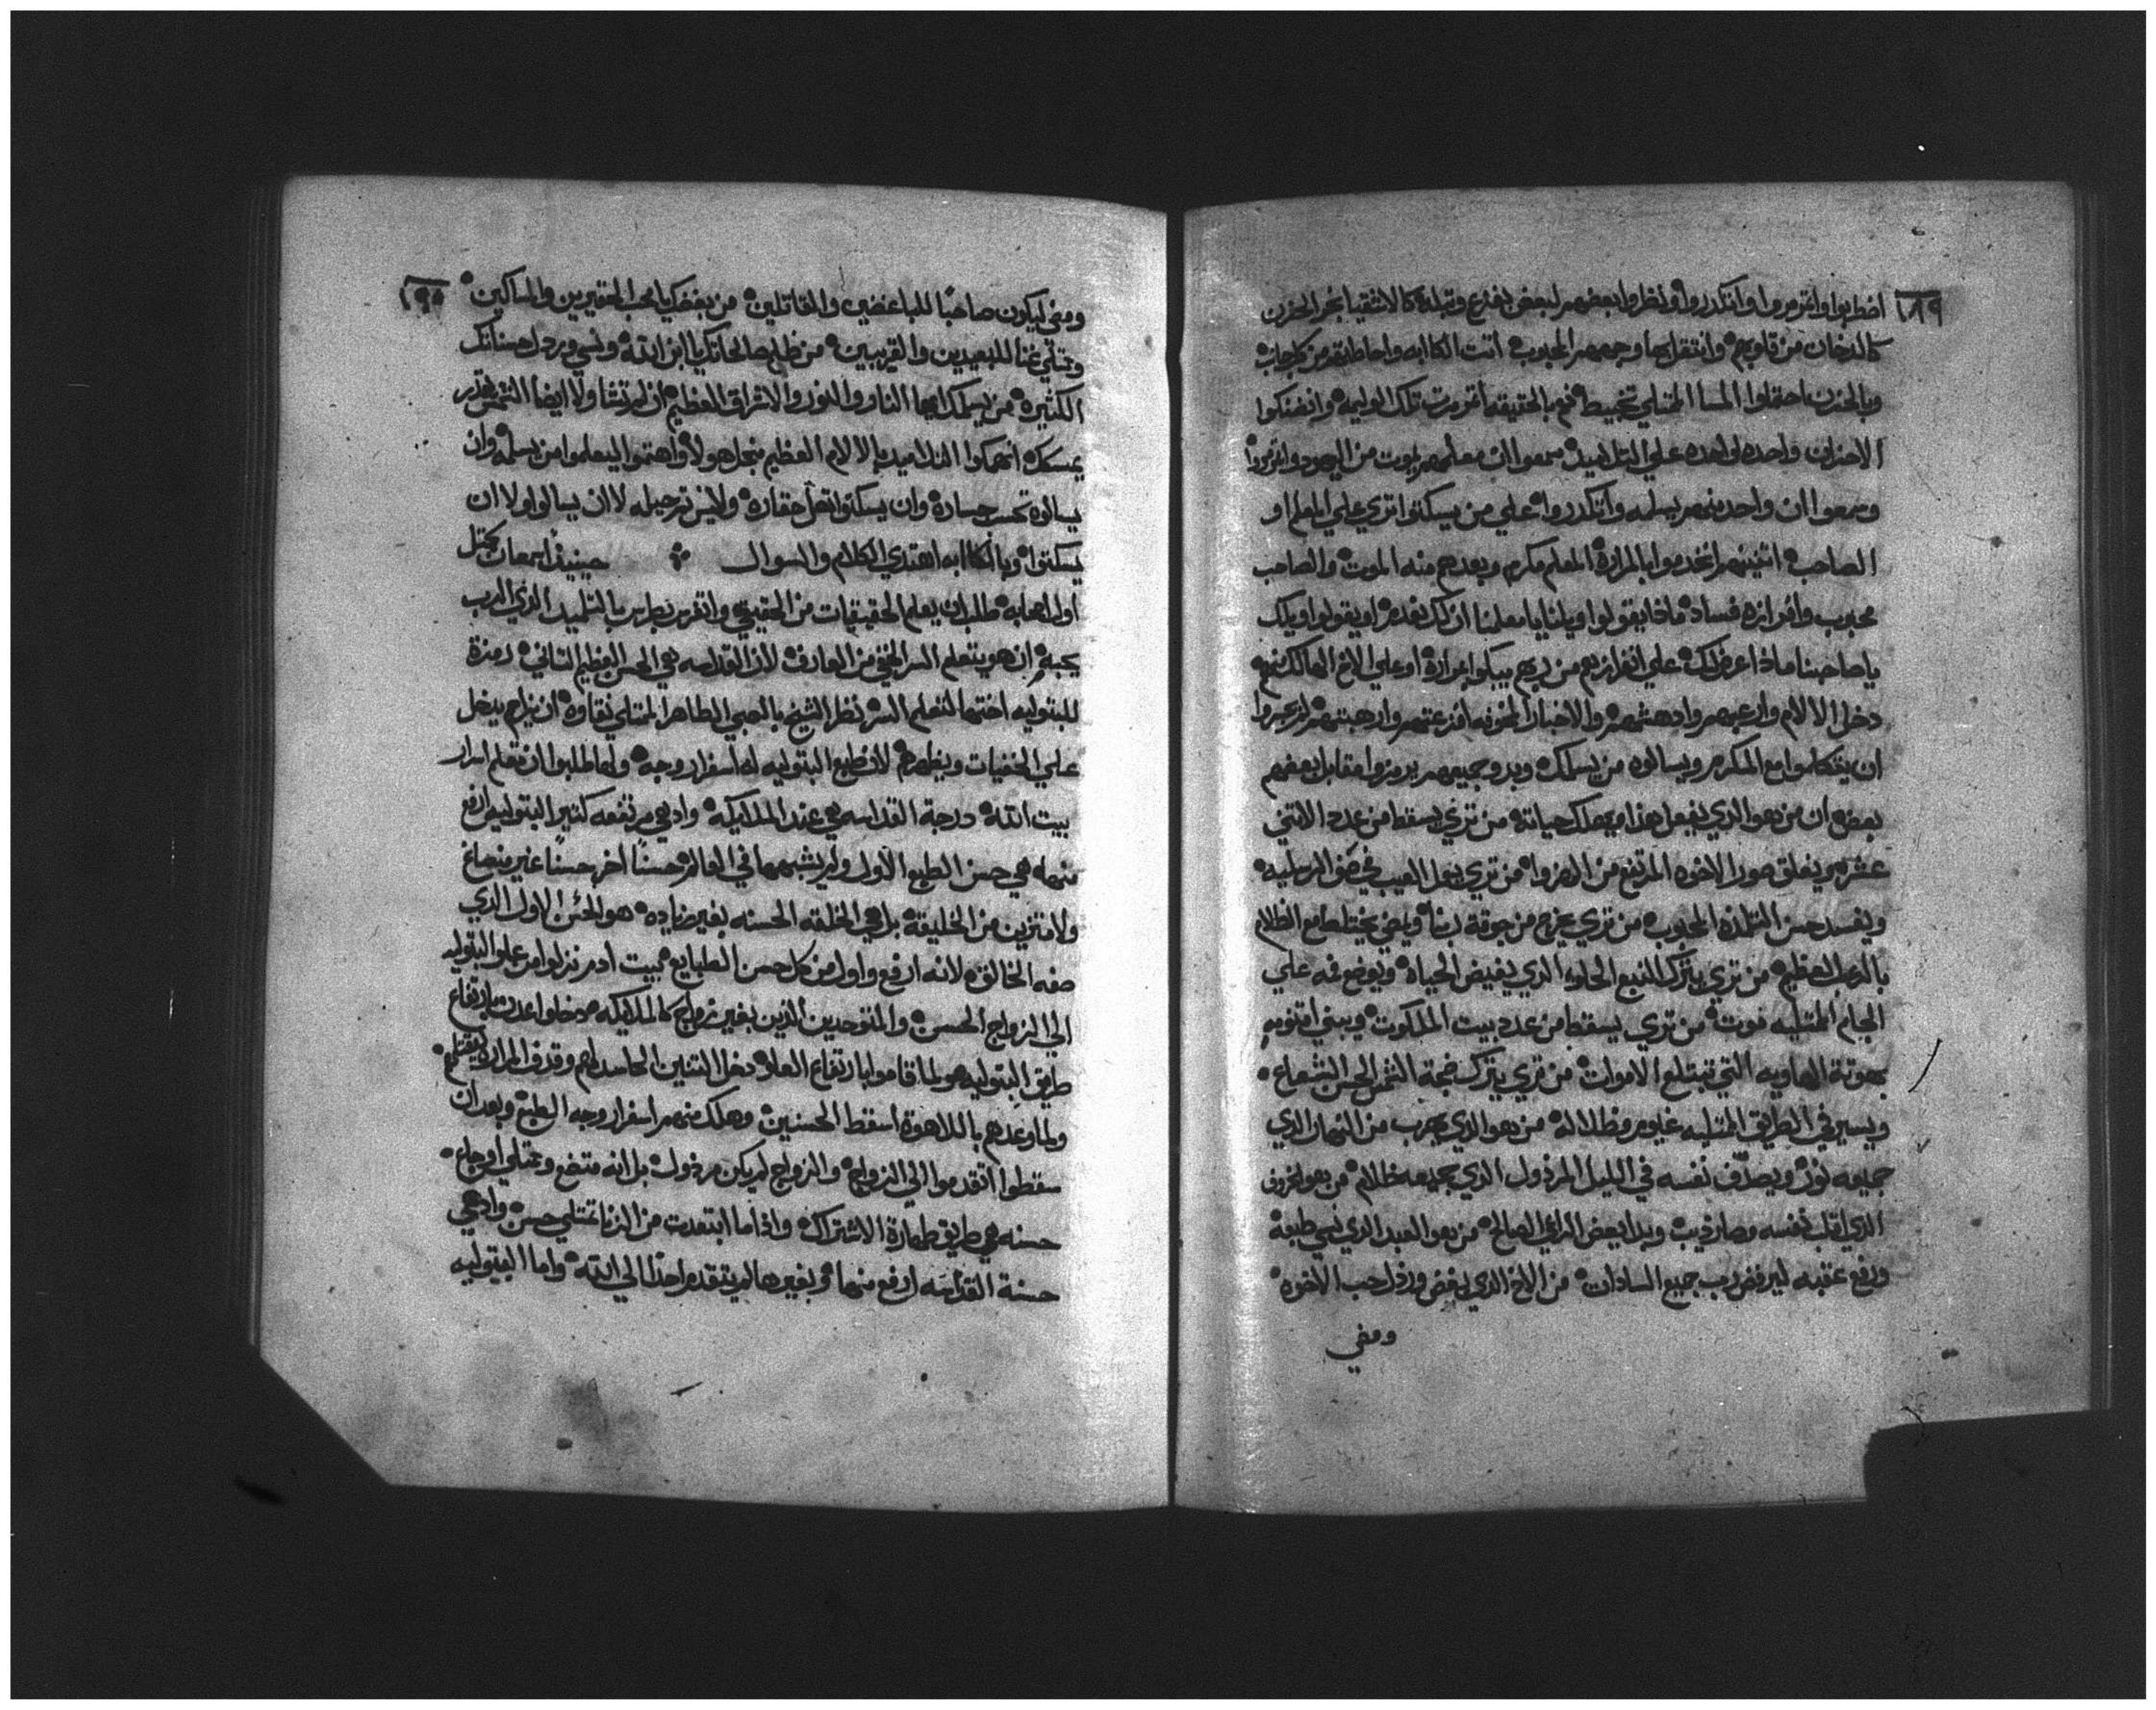 ٢٨٩
اضطربوا واتمرمروا وانكدروا ونظروا بعضهم لبعض بفزع وتبلدة كالاتقيا بخر الحزن
كالدخان من قلوبهم وانتقل بها وجههم المحبوب اتت الكاابه واحاطتهم من كل جانب
وبالحزن احتملوا المسا الممتلي تخبيط فم بالحقيقه اتمرمرت تلك الوليمه وانفتكوا
الاحزان واحده لواحده علي التلاميذ سمعوا ان معلمهم يموت من اليهود واتمرمروا
وسمعوا ان واحد منهم يسلمه واتكدروا علي من يسكتوا تري علي المعلم او
الصاحب اتنينهم اتخدموا بالمرارة المعلم مكرم وبعدهم منه الموت والصاحب
محبوب وافرازه فساد ماذا يقولوا ويلنا يا معلمنا ان لك نفدم او يقولوا ويلك
يا صاحبنا ماذا عرض لك علي افرازهم من ربهم يبكوا بمرارة او علي الاخ الهالك منهم
دخل الالام وارعبهم وادهشهم والاخبار المحزنه افزعتهم وارهبتهم لم يعبروا
ان يتكلموا مع المكرم ويسالوه من يسلمك وبدوا جميعهم يرمزوا مقابل بعضهم
بعض ان من هو الذي يفعل هذا ويهلك حياته من تري يسقط من عدد الاتني
عشر ويغلق صور الاخوه المرتفع من الهزوا من تري يعمل العيب في صف الرسليه
ويفسد حسن التلمذه المحبوب من تري يخرج من جوقة ربنا ويمضي يختلط مع الظلام
بالرعب العظيم من تري يترك النبع الحلوه الذي يفيض الحياة ويوضع فه علي
الجام الممتليه موت من تري يسقط من عدد بيت الملكوت ويبني اقنومه
بهوتة الهاويه التي تبتلع الاموات من تري يترك صحبة الشمس الحسن الشعاع
ويسير في الطريق الممتليه غيوم وظلاله من هو الذي يهرب من النهار الذي
جميعه نور ويصدف نفسه في الليل المرذول الذي جميعه ظلام من هو الخروف
الذي اقلب نفسه وصار ذيب وبدا يبغض الراعي الصالح من هو العبد الذي نسي طبعة
ورفع عقبه ليرفض رب جميع السادات من الاخ الذي يبغض ورذل حب الاخوه
ومضي
٢٩٠
ومضي ليكون صاحبًا للباغضين والقاتلين من يبغضك يا محب الحقيرين والمساكين
وتملي غنا للبعيدين والقريبين من ظلم صالحاتك يا ابن الله ونسي ورذل حسناتك
الكثيره من يسلمك ايها النار والنور والاشراق العظيم ان لم تشا ولا ايضا الشمس تقدر
يمسكك انهمكوا التلاميذ بالالام العظيم مجل هولا واهتموا ليعلموا من يسلمه وان
يسالوه تحسب جسارة وان يسكتوا تعمل حقارة وليس ثم حيله لا ان يسالوا ولا ان
يسكتوا وبالكاابه اقتدي الكلام والسوال حينيذ اسمعان ممتلي
اولا المهابه طلب ان يعلم الحقيقيات من الحقيقي واتفرس بطرس بالتلميذ الذي الرب
يحبه ان هو يتعلم السر الخفي من العارف لان القداسه هي الحسن العظيم التاني رمزة
للبتوليه اختها لتعلم السر نظر الشيخ بالصبي الطاهر الممتلي نقاوه ان يزاح يدخل
علي الخفيات ويظهرهم لان طبع البتوليه له اسفرار وجه ولها طلبوا ان تعلم اسرار
بيت الله درجة القداسه هي عند الملايكه وادهي مرتفعه كتير البتوليه ارفع
منها هي حسن الطبع الاول ولم يشبهها في العالم حسنًا اخر حسنًا غير منصاغ
ولا متزين من الخليقة بل هي الخلقه الحسنه بغير زياده هو الحسن الاول الذي
صفه الخالق لانه ارفع واول من كل حسن الطبايع بيت ادم نزلوا من علو البتوليه
الي الزواج الحسن والمتوحدين الذين بغير زواج كالملايكه دخلوا اعدت بارتفاع
طريق البتوليه هو لما قاموا بارتفاع العلو دخل التنين الحاسد لهم وقدف المراره لقتلهم
ولما وعدهم باللاهوة اسقط الحسنين وهلك منهم اسفرار وجه الطبع وبعد ان
سقطوا اتقدموا الي الزواج والزواج لم يكن مرذول بل انه متضع وممتلي اوجاع
حسنه هي طريق طهارة الاشتراك واذا ما ابتعدت من الزنا تمتلي حسن وادهي
حسنة القداسه ارفع منها وبغيرها لم يتقدم احدًا الي الله واما البتوليه